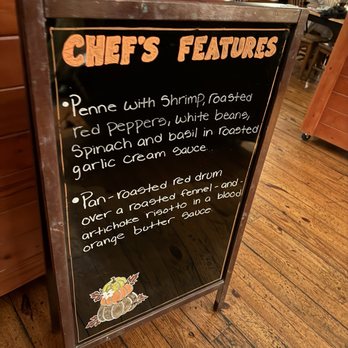 CHEF'S FEATURES
•Penne with Shrimp, roasted
red peppers, white beans,
Spinach and basil in roasted
garlic cream sauce
•Pan-roasted red drum
over a roasted fennel-and-
artichoke risotto in a blood
orange butter sauce